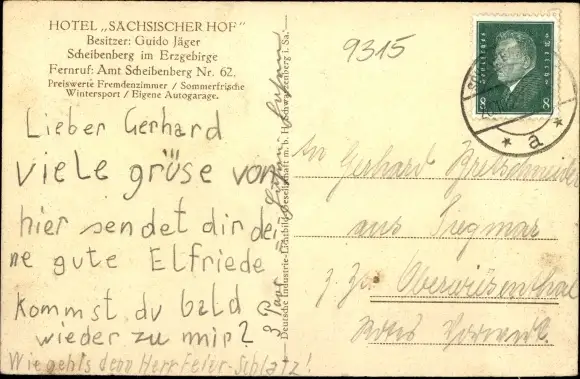 HOTEL „SÄCHSISCHER HOF"
Besitzer: Guido Jäger
Scheibenberg im Erzgebirge
Fernruf: Amt Scheibenberg Nr. 62.
Preiswerte Fremdenzimmer / Sommerfrische
Wintersport / Eigene Autogarage.
Lieber Gerhard
viele grüse von
hier sendet dir dei
ne gute Elfriede
kommst du bald
wieder zu mir?
Wie geht's denn Herr
Deutsche Industrie-Lichtbild-Gesellschaft m. b. H. Schwarzenberg i. Sa.
9315
Deutsches Reich
8 8
a
Gerhard
aus Siegmar
z. Zt. Oberwiesenthal
Rotes Vorwerk.